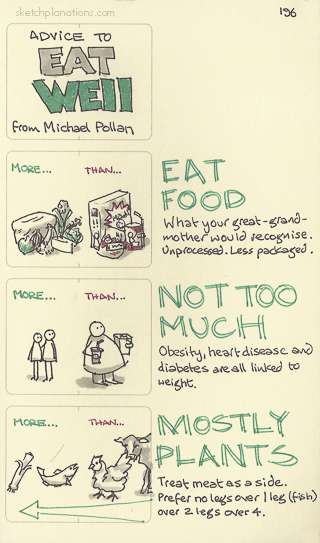 sketchplanations.com
196
ADVICE TO
EAT
WELL
from Michael Pollan
MORE... THAN...
EAT
FOOD
What your great-grand-
mother would recognise.
Unprocessed. Less packaged.
MORE... THAN...
NOT TOO
MUCH
Obesity, heart disease and
diabetes are all linked to
weight.
MORE... THAN...
MOSTLY
PLANTS
Treat meat as a side.
Prefer no legs over 1 leg (fish)
over 2 legs over 4.